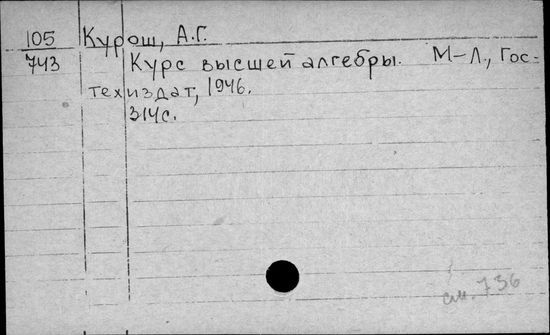 105 Курош, А.Г.
743 Курс высшей алгебры. М-Л., Гос-
техиздат, 1946.
314с.
см. 736